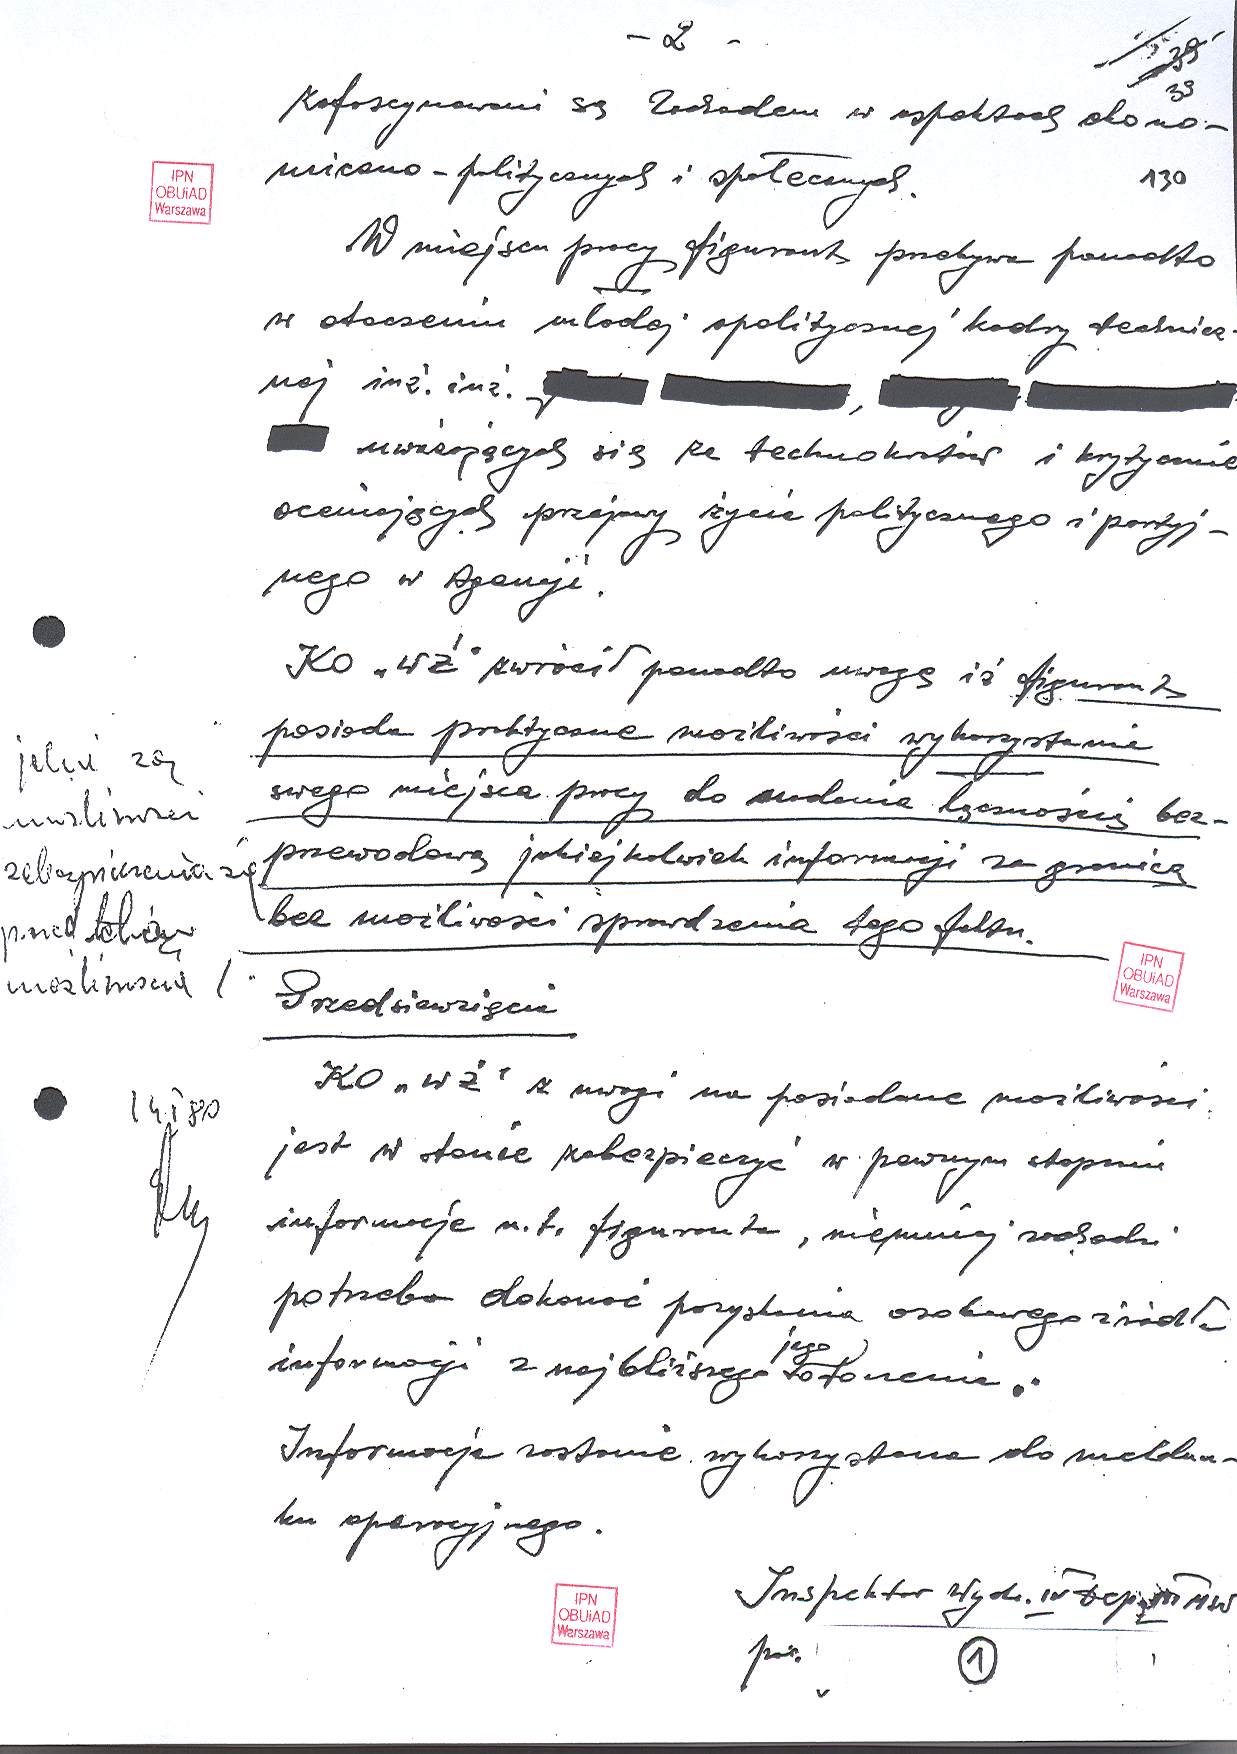 - 2 -
39
39
zafascynowani są Zachodem w aspektach ekono-
miczno-politycznych i społecznych.
130
IPN
OBUiAD
Warszawa
W miejscu pracy figurant przebywa ponadto
w otoczeniu młodej apolitycznej kadry technicz-
nej inż. inż. ,
uważających się za technokratów i krytycznie
oceniających przejawy życia politycznego i partyj-
nego w Agencji.
KO „WŻ" zwrócił ponadto uwagę iż figurant
posiada praktyczne możliwości wykorzystania
swego miejsca pracy do nadania łącznością bez-
przewodową jakiejkolwiek informacji za granicę
bez możliwości sprawdzenia tego faktu.
jakie są
możliwości
zabezpieczenia się
przed taką
możliwością
IPN
OBUiAD
Warszawa
Przedsięwzięcia
KO „WŻ" z uwagi na posiadane możliwości
jest w stanie zabezpieczyć w pewnym stopniu
informacje n.t. figuranta, niemniej zachodzi
potrzeba dokonać pozyskania osobowego źródła
informacji z najbliższego jego otoczenia.
14 I 80
Informacja zostanie wykorzystana do meldun-
ku operacyjnego.
IPN
OBUiAD
Warszawa
Inspektor Wydz. IV Dep. III MSW
por.
1